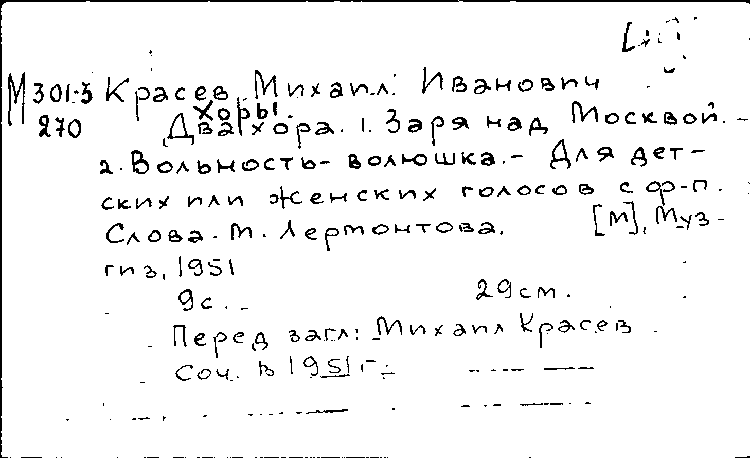 М 301-3 Красев, Михаил Иванович
Хоры.
270 Два хора. 1. Заря над Москвой. -
2. Вольность-волюшка. - Для дет-
ских или женских голосов с ф-п.
Слова. М. Лермонтова. [М], Муз-
гиз, 1951
9с. 29см.
Перед загл: Михаил Красев
Соч. в 1951 г.